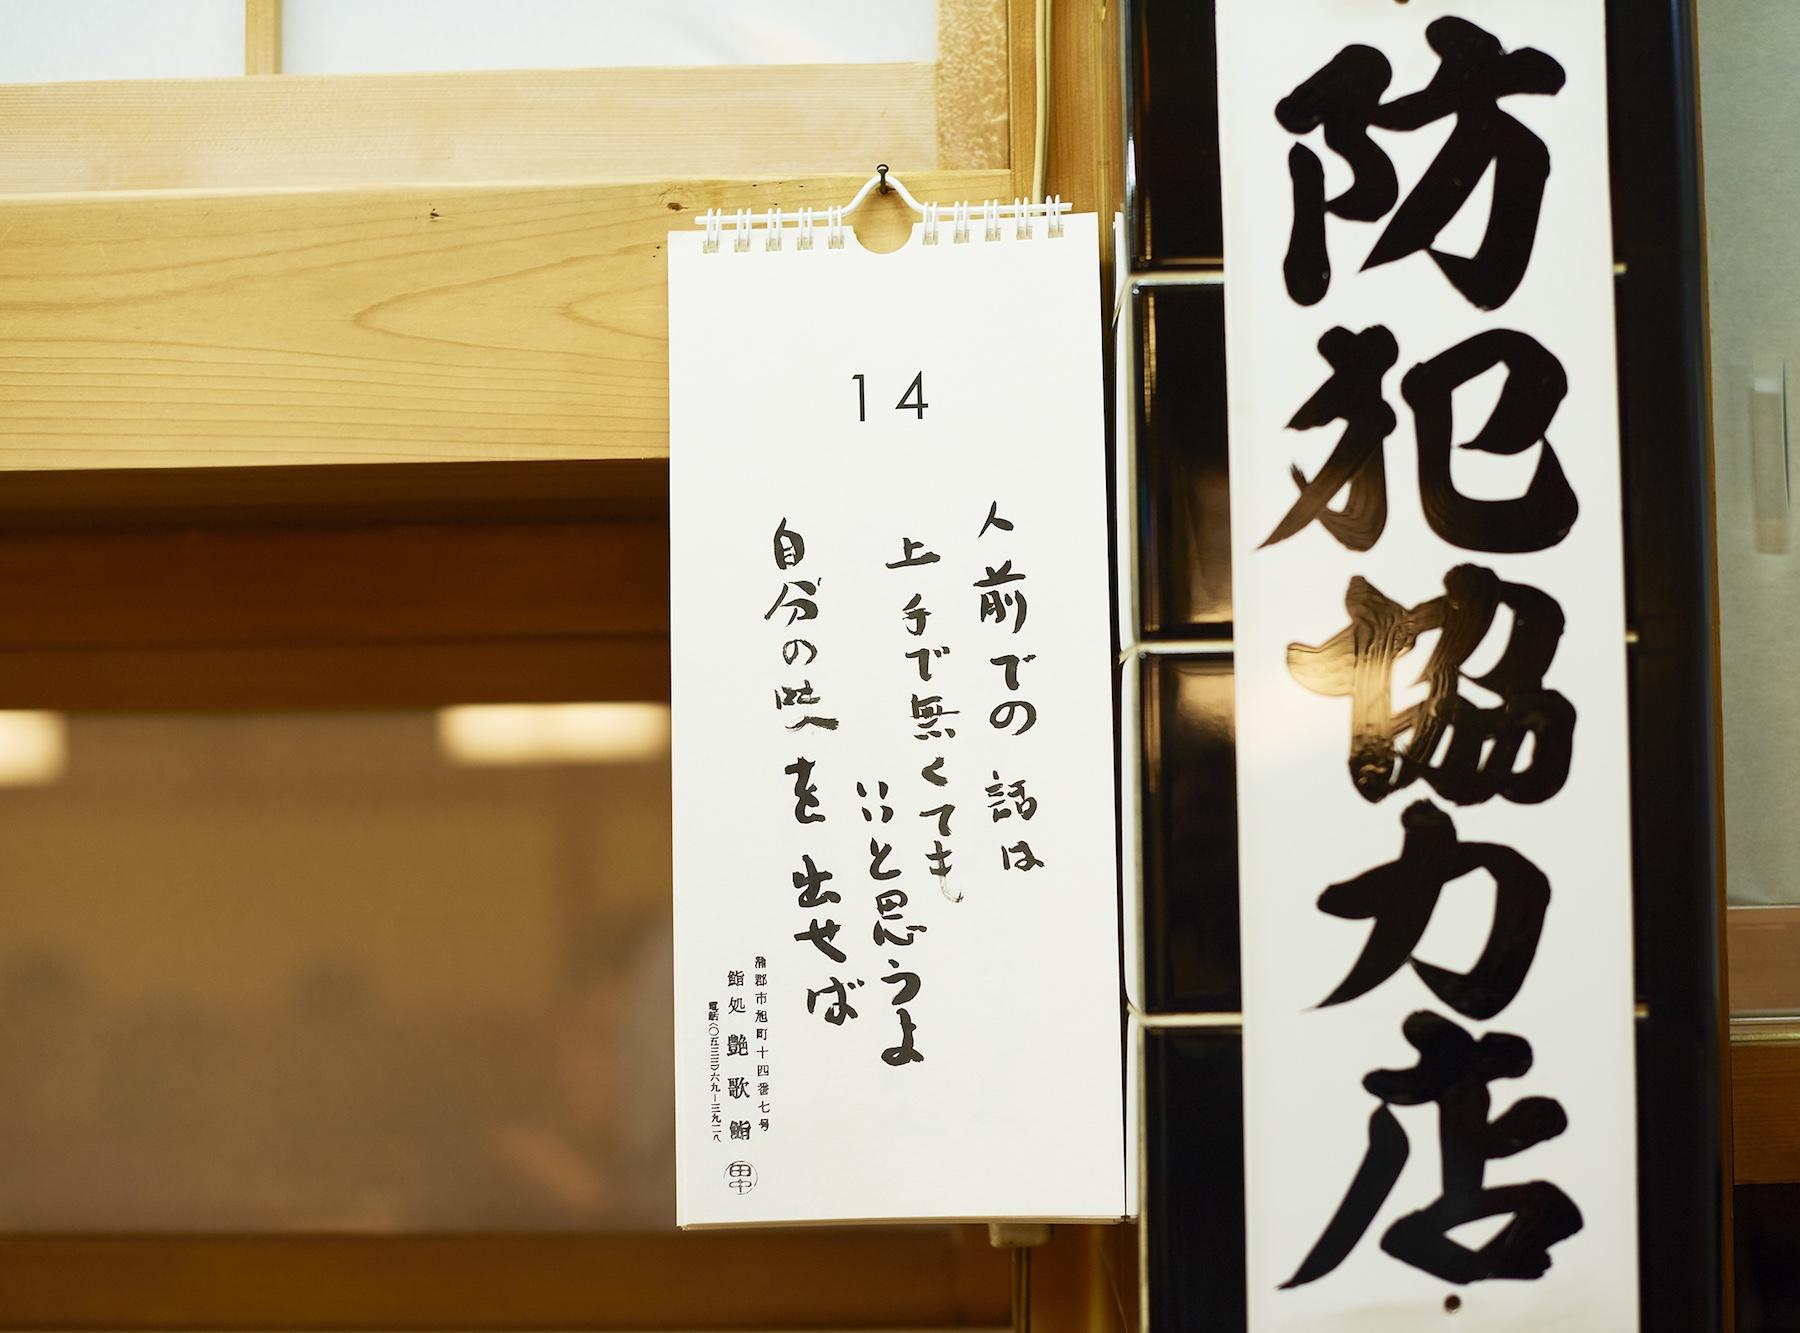 防犯協力店
14
人前での話は
上手で無くても
いいと思うよ
自分の味を出せば
蒲郡市旭町十四番七号
鮨処 艶歌鮨
電話(〇五三三)六九ー三九二八
田中